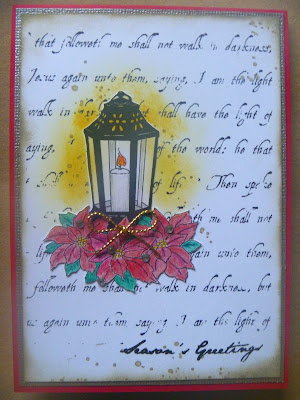 that followeth me shall not walk in darkness,
Jesus again unto them, saying, I am the light
walk in dar shall have the light of
aying, of the world: he that
l of lif Then spoke
th me shall not
life ain unto them,
followeth me shall not walk in darkness, but
us again unto them, saying, I am the light of
Season's Greetings